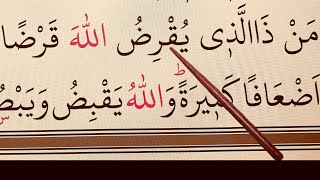 مَنْ ذَاالَّذِی یُقْرِضُ اللّٰهَ قَرْضًا
اَضْعَافًا كَثِیْرَةً ؕ وَاللّٰهُ یَقْبِضُ وَیَبْصُ